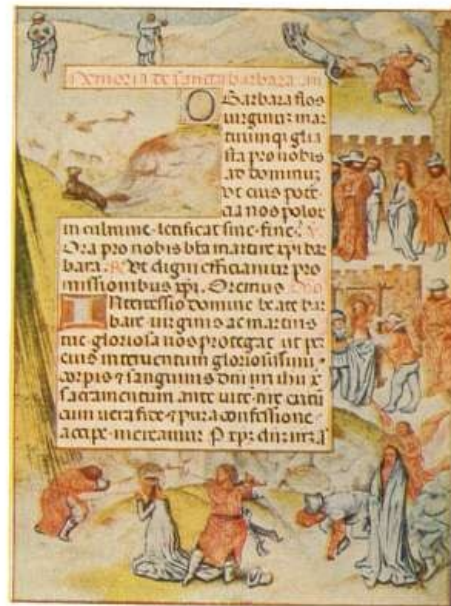 Memoria de sancta barbara an
O Barbara flos
virginum mar
tirum q; glia
sta pro nobis
ad dominum
vt cius pote
cia nos polor
in culmine letificat sine fine. V
Ora pro nobis bta martire xpi bar
bara. R Vt digni efficiamur pro
missionibus xpi. Oremus
Intercessio domine beate bar
bare virginis ac martiris
tue gloriosa nos protegat ut per
eius interventum gloriosissimi
corpis & sanguinis dni nri ihu x
sacramentum ante vite
cum vera fide & pura confessione
accipe mereamur P xpm dnm nrm